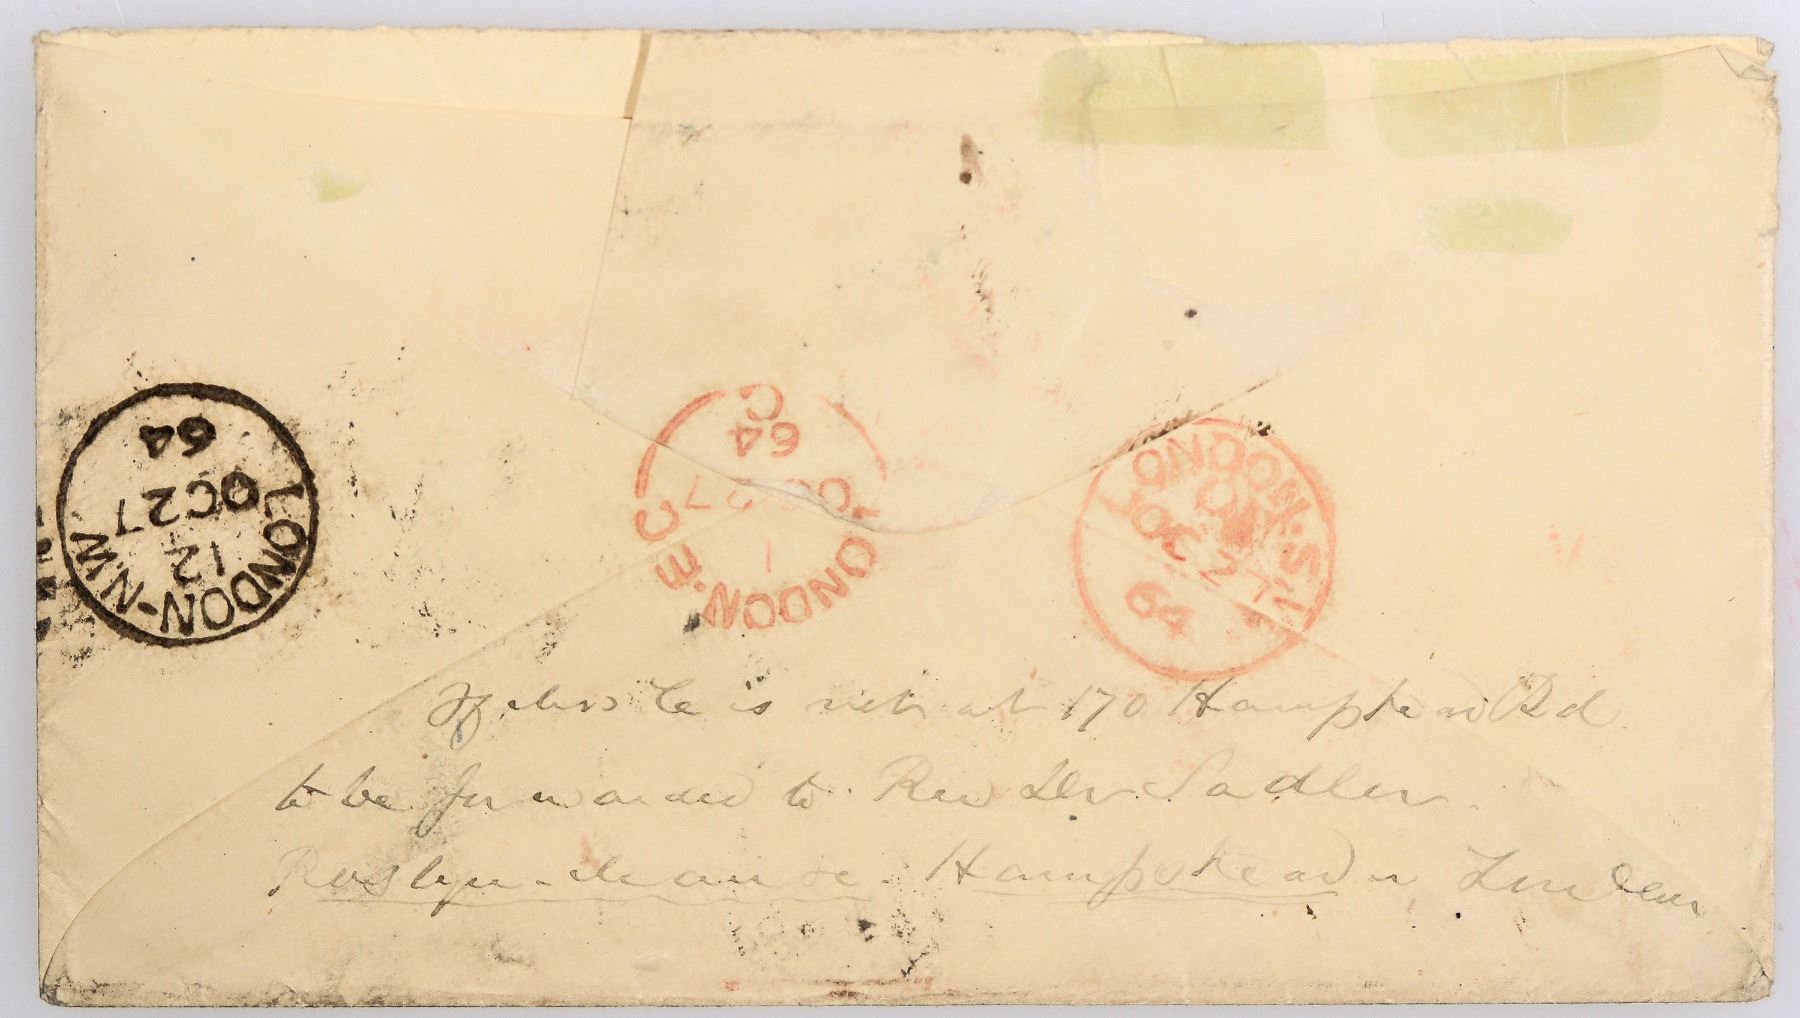 LONDON·N.W
12
OC27
64
LONDON·E.C
1
OC 27
64
C
LONDON.S.W
OC 27
64
If Mrs C is not at 170 Hampstead Rd
to be forwarded to Rev Dr Sadler.
Rosslyn-Manse. Hampstead London